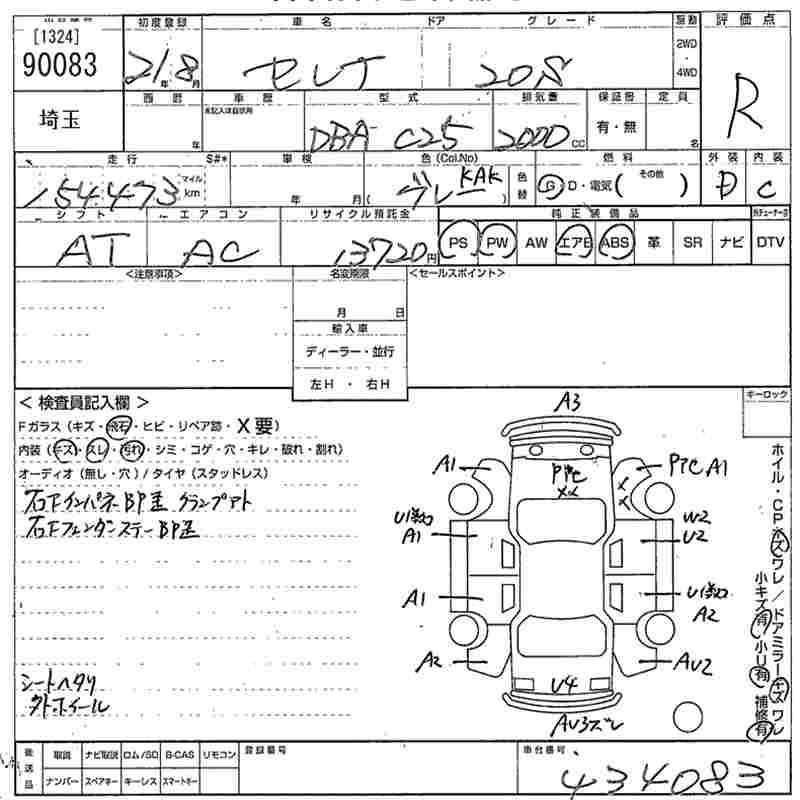 [1324]
90083
初度登録 車名 ドア グレード 駆動 評価点
21年8月 セレナ 20S 2WD・4WD R
埼玉
西暦 車歴 型式 排気量 保証書 定員
未記入は自家用
年 DBA C25 2000cc 有・無 名
走行 S#* 車検 色(Col.No) 燃料 外装 内装
154473 マイル km 年 月 グレー KAK 色替 G D・電気( その他 ) D C
シフト エアコン リサイクル預託金 純正装備品
AT AC 13720円 PS PW AW エアB ABS 革 SR ナビ DTV
<注意事項> 名変期限 <セールスポイント>
月 日
輸入車
ディーラー・並行
左H ・ 右H
キーロック
< 検査員記入欄 >
Fガラス(キズ・飛石・ヒビ・リペア跡・X要)
内装(キズ・スレ・汚れ・シミ・コゲ・穴・キレ・破れ・割れ)
オーディオ(無し・穴)/タイヤ(スタッドレス)
右Fインパネ BP歪 クランプアト
右Fフェンダーステー BP歪
シートヘタリ
外ホイール
A3
A1 PTC XX PTC A1
XX
U1 A1 W2 U2
A1 U1 A2
A2 U4 AU2
AU3ズレ
ホイル・CPキズワレ/ドアミラーキズワレ
小キズ有 小リ有 補修有
後送品 取説 ナビ取説 ロム/SD B-CAS リモコン 登録番号 車台番号
ナンバー スペアキー キーレス スマートキー 434083